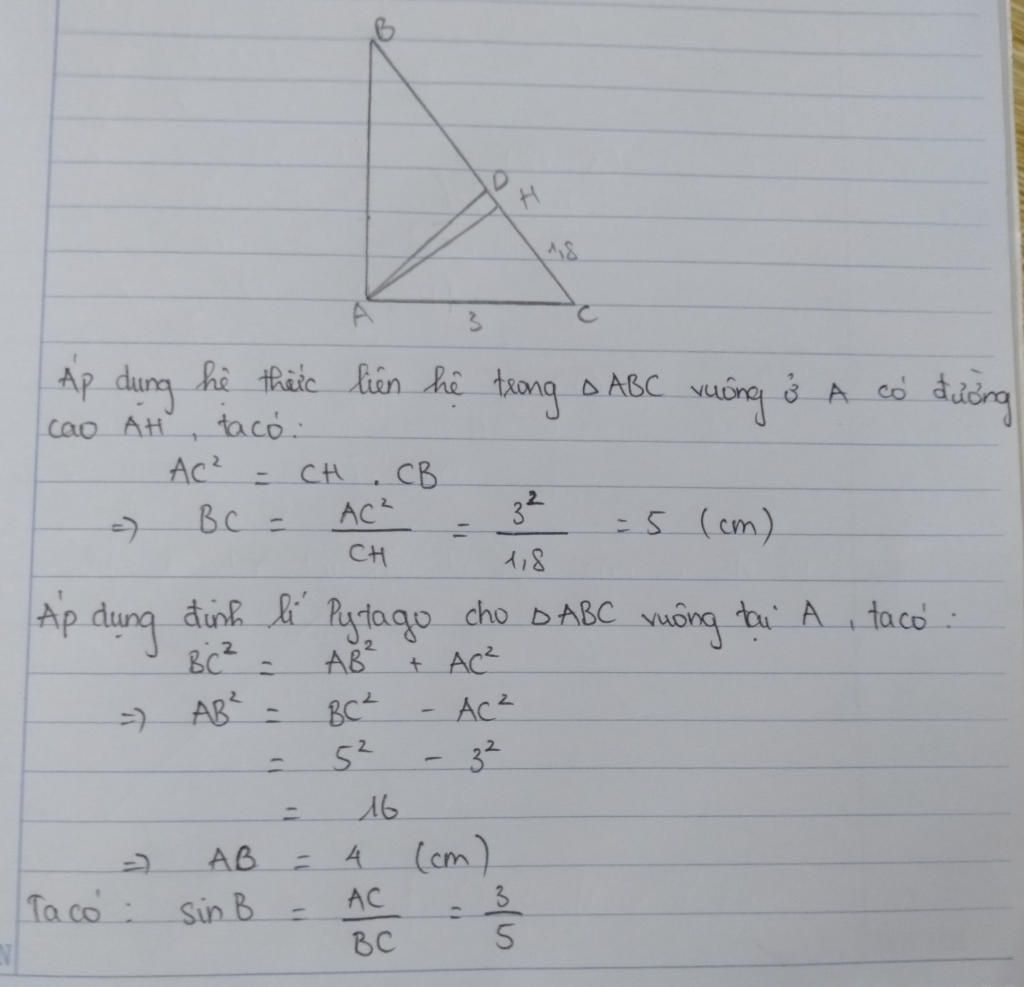 B
D
H
1,8
A
3
C
Áp dụng hệ thức liên hệ trong △ABC vuông ở A có đường
cao AH, ta có:
AC² = CH . CB
=> BC = AC²/CH = 3²/1,8 = 5 (cm)
Áp dụng định lí Pytago cho △ABC vuông tại A, ta có:
BC² = AB² + AC²
=> AB² = BC² - AC²
= 5² - 3²
= 16
=> AB = 4 (cm)
Ta có: sin B = AC/BC = 3/5
N